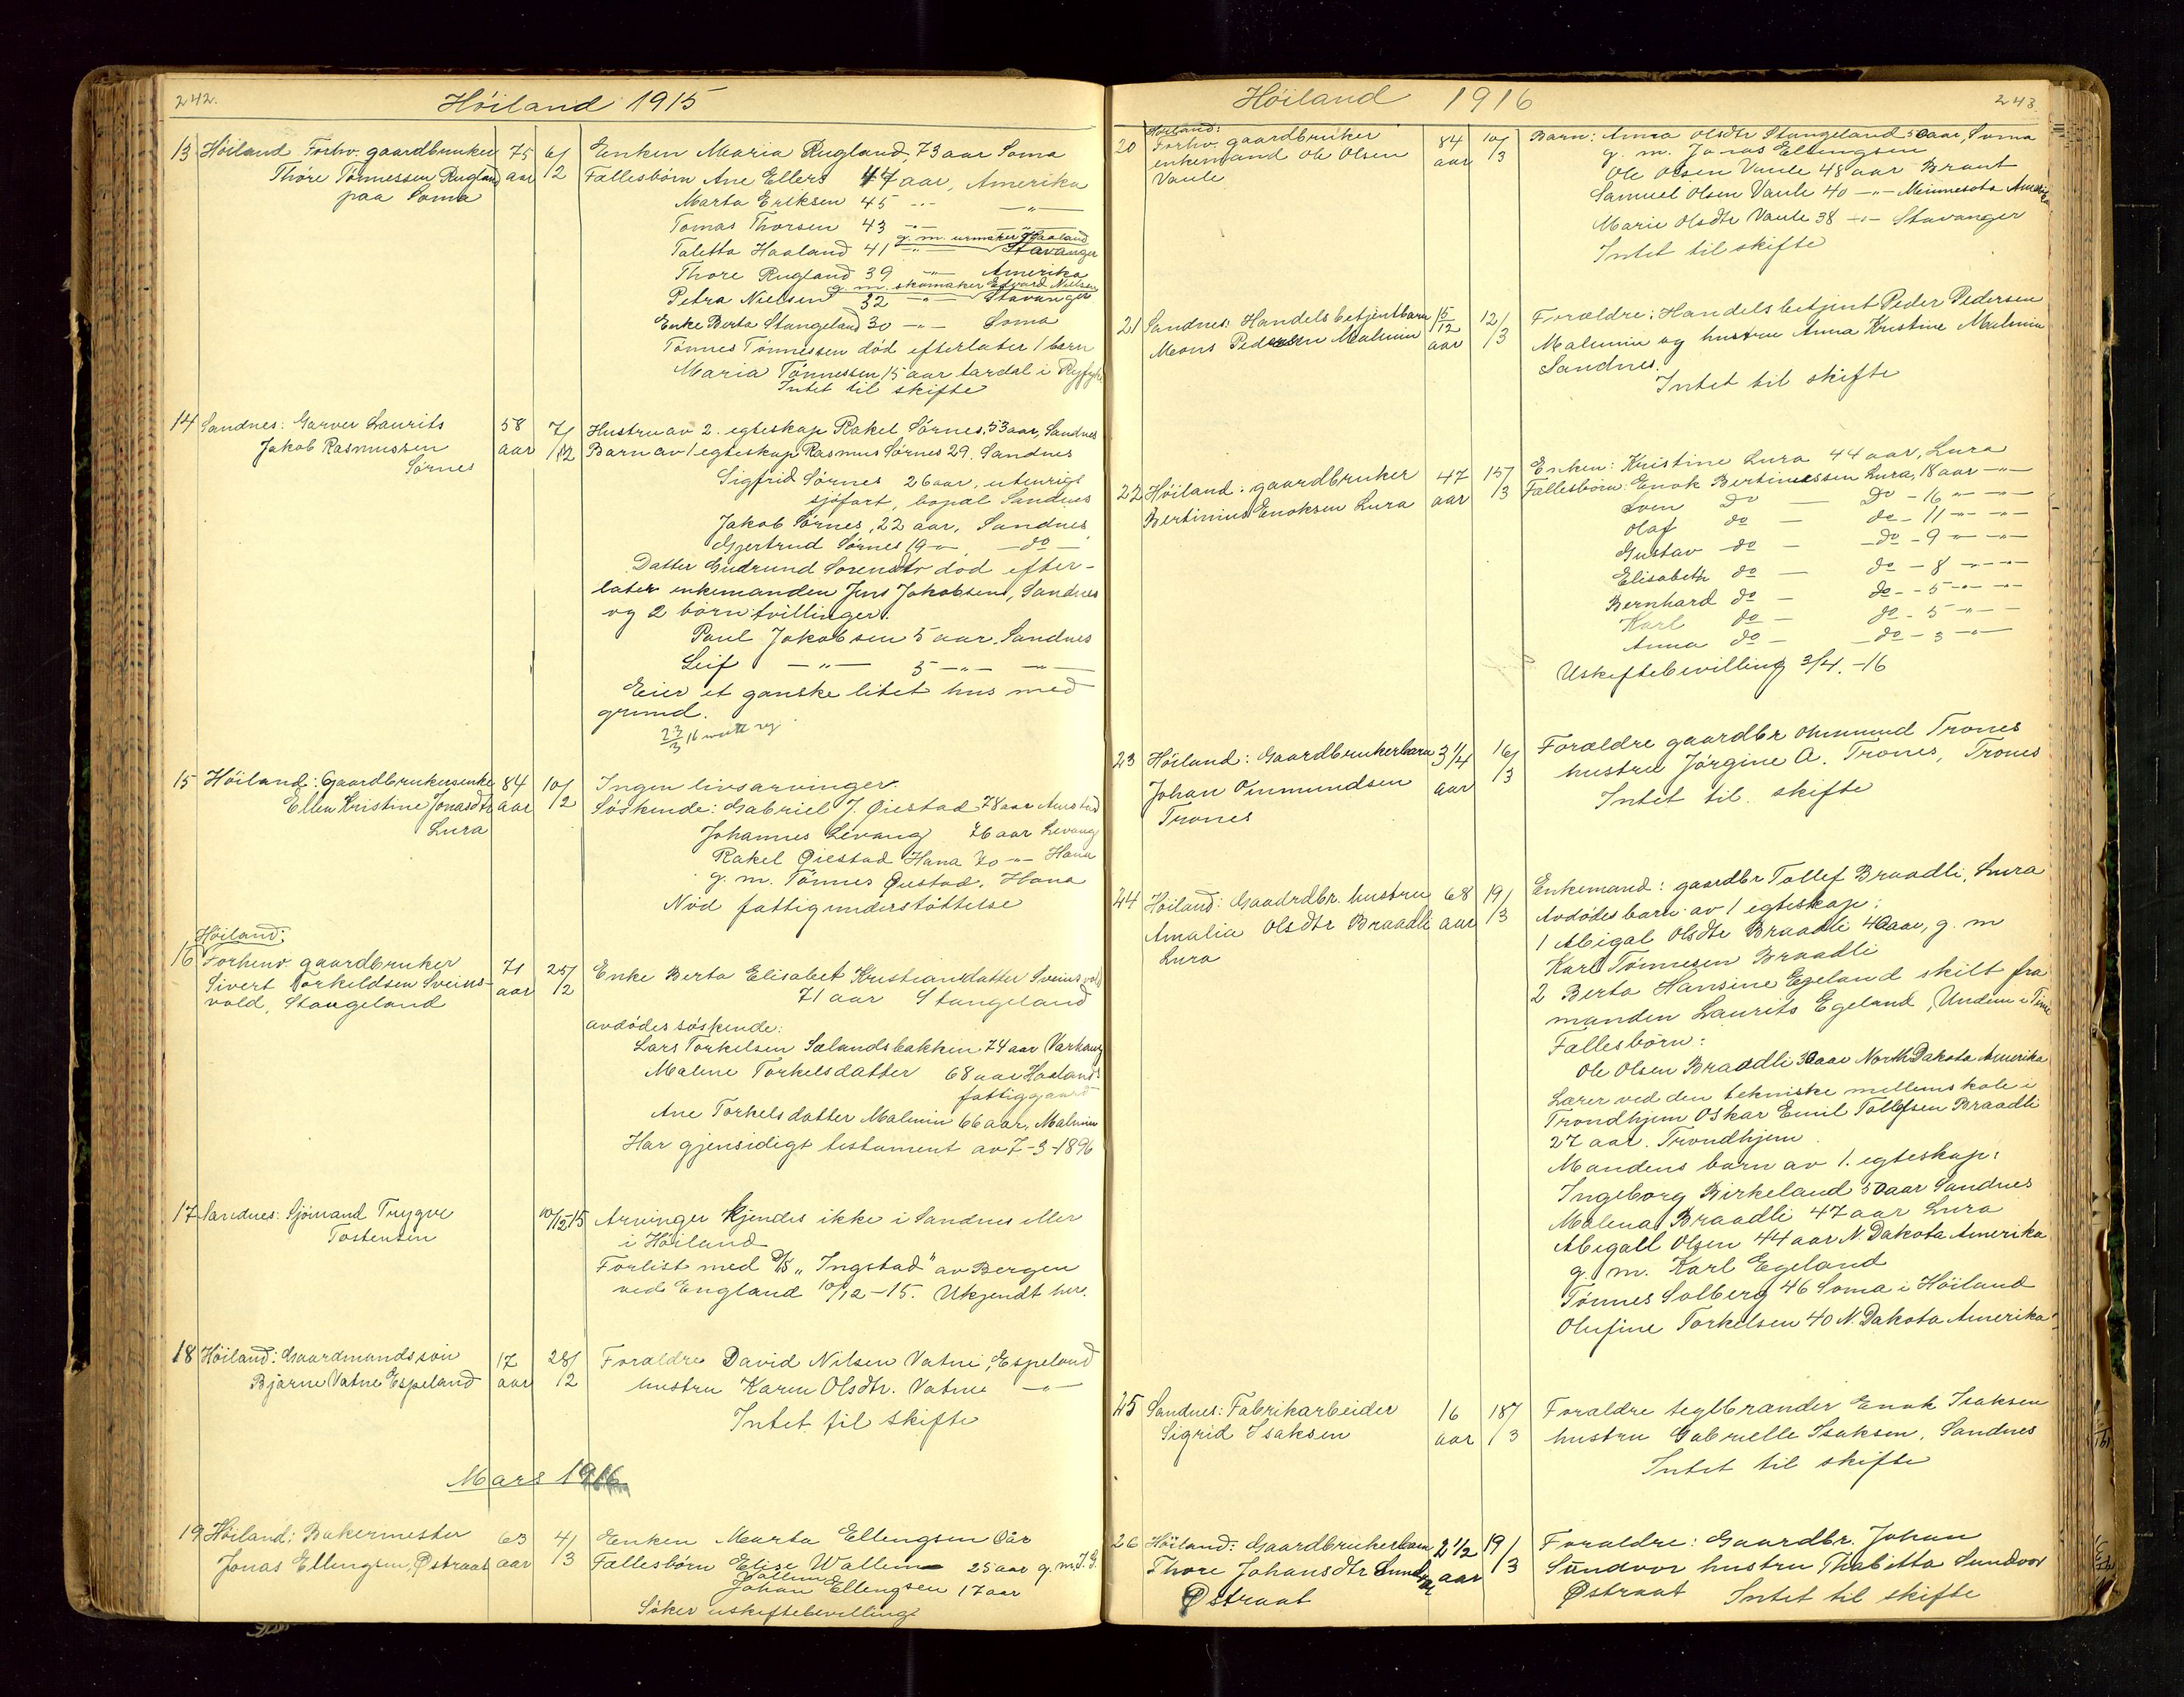 242.
Höiland 1915
13 Höiland Forhv. gaardbruker 75 6/ Enken Maria Rugland, 73 aar Soma
Thore Tönnessen Rugland aar 12 Fællesbörn Ane Ellers 47 aar, Amerika
paa Soma
Marta Eriksen 45 -"- -"-
Tomas Thorsen 43 -"- -"-
g. m. urmaker Haaland
Taletta Haaland 41 -"- Stavanger
Thore Rugland 39 -"- Amerika
g. m. skomaker Edvard Nielsen
Petra Nielsen 32 -"- Stavanger
Enke Berta Stangeland 30 -"- Soma
Tönnes Tönnessen död efterlater 1 barn
Maria Tönnessen 15 aar i Ryfylke
Intet til skifte
14 Sandnes: Garver Laurits 58 7/ Hustru av 2. egteskap Rakel Sörnes, 53 aar, Sandnes
Jakob Rasmussen aar /12 Barn av 1 egteskap, Rasmus Sörnes 29. Sandnes
Sörnes
Sigfrid Sörnes 26 aar, utenrigs
sjöfart, bopæl Sandnes
Jakob Sörnes, 22 aar, Sandnes
Gjertrud Sörnes 19 -"- do -
Datter Gudrund död efter-
later enkemanden Jens Jakobsen, Sandnes
og 2 börn tvillinger.
Paul Jakobsen 5 aar. Sandnes
Leif -"- 5 -"- -"-
Eier et ganske litet hus med
grund.
23/3 16
15 Höiland: Gaardbrukerenke 84 10/ Ingen livsarvinger.
Ellen Kristine Jonasdtr aar /2 Söskende: Gabriel J. Öiestad 78 aar
Lura
Johannes Levang 76 aar Levang
Rakel Öiestad Hana 70 -"- Hana
g. m. Tönnes Öiestad. Hana
Nöd fattigunderstöttelse
Höiland:
16 Forhenv. gaardbruker 71 25/ Enke Berta Elisabet Kristiansdatter Sveinsvold
Sivert Torkeldsen Sveins- aar /2 71 aar Stangeland
vold, Stangeland
avdödes söskende:
Lars Torkelsen Sælandsbakken 74 aar Varhaug
Malene Torkelsdatter 68 aar Haalands
fattiggaard
Ane Torkelsdatter Malmin 66 aar, Malmin
Har gjensidigt testament av 7-3-1896
17 Sandnes: Sjömand Trygve 10/12-15 Arvinger kjendes ikke i Sandnes eller
Tostensen i Höiland
Forlist med D/S "Ingstad" av Bergen
ved England 10/12-15. Ukjendt her.
18 Höiland: Gaardmandssön 17 28/ Foraldre David Nilsen Vatne, Espeland
Bjarne Vatne Espeland aar /2 hustru Karen Olsdtr. Vatne -"-
Intet til skifte
Mars 1916
19 Höiland: Bakermester 63 4/ Enken Marta Ellengsen Oår
Jonas Ellengsen, Østraat aar /3 Fællesbörn Elise Wallem 25 aar g. m. J. G.
Wallem
Johan Ellengsen 17 aar
Söker uskiftebevilling
Höiland 1916
243
Höiland:
20 Forhv. gaardbruker 84 10/ Barn: Anna Olsdtr Stangeland 50 aar, Soma
enkemand Ole Olsen aar /3 g. m. Jonas Ellingsen
Vaule Ole Olsen Vaule 48 aar Braut
Samuel Olsen Vaule 40 -"- Minnesota Amerika
Marie Olsdtr Vaule 38 -"- Stavanger
Intet til skifte
21 Sandnes: Handelsbetjentbarn 15/12 12/ Forældre: Handelsbetjent Peder Pedersen
Mons Pedersen Malmin aar /3 Malmin og hustru Anna Kristine Malmin
Sandnes.
Intet til skifte
22 Höiland: gaardbruker 47 15/ Enken: Kristine Lura 44 aar, Lura
Bertinius Enoksen Lura aar /3 Fællesbörn: Enok Bertinussen Lura, 18 aar -"-
Sven do - do - 16 -"- -"-
Olaf do - do - 11 -"- -"-
Gustav do - do - 9 -"- -"-
Elisabeth do - do - 8 -"- -"-
Bernhard do - do - 5 -"- -"-
Karl do - do - 5 -"- -
Anna do - do - 3 -"-
Uskiftebevilling 3/4.-16
23 Höiland: Gaardbrukerbarn 3 1/4 16/ Forældre gaardbr Ommund Trones
Johan Ommundsen aar /3 hustru Jörgine A. Trones, Trones
Trones Intet til skifte
24 Höiland: Gaardbr. hustru 68 19/ Enkemand: gaardbr Tollef Braadli, Lura
Amalia Olsdtr Braadli aar /3 Avdödes barn av 1 egteskap:
Lura 1 Abigal Olsdtr Braadli 40 aar, g. m
Karl Tönnesen Braadli
2 Berta Hansine Egeland skilt fra
manden Laurits Egeland, Undem i Time
Fællesbörn:
Ole Olsen Braadli 30 aar North Dakota Amerika
Lærer ved den tekniske mellemskole i
Trondhjem Oskar Emil Tollefsen Braadli
27 aar. Trondhjem
Mandens barn av 1. egteskap:
Ingeborg Birkeland 50 aar Sandnes
Malena Braadli 47 aar Lura
Abigall Olsen 44 aar N. Dakota Amerika
g. m. Karl Egeland
Tönnes Solberg 46 Soma i Höiland
Olufine Torkelsen 40 N. Dakota Amerika
25 Sandnes: Fabrikarbeider 16 18/ Foraldre teglbrænder Enok Isaksen
Sigrid Isaksen aar /3 hustru Gabrielle Isaksen, Sandnes
Intet til skifte
26 Höiland: Gaardbrukerbarn 2 1/2 19/ Foraldre: Gaardbr. Johan
Thore Johansdtr Sundvor aar /3 Sundvor hustru Thabitta Sundvor
Østraat Østraat Intet til skifte